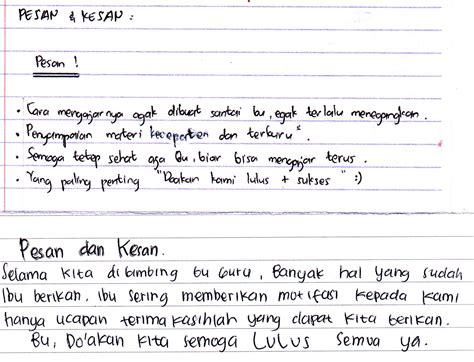 PESAN & KESAN :
Pesan !
• Cara mengajarnya agak dibuat santai bu, agak terlalu menegangkan.
• Penyampaian materi kecepatan dan terburu².
• Semoga tetep sehat aja Bu, biar bisa mengajar terus.
• Yang paling penting "Doakan kami lulus + sukses" :)
Pesan dan Kesan.
Selama kita dibimbing bu Guru, Banyak hal yang sudah
Ibu berikan, ibu sering memberikan motifasi kepada kami
hanya ucapan terima kasihlah yang dapat kita berikan.
Bu, Do'akan kita semoga LULUS semua ya.